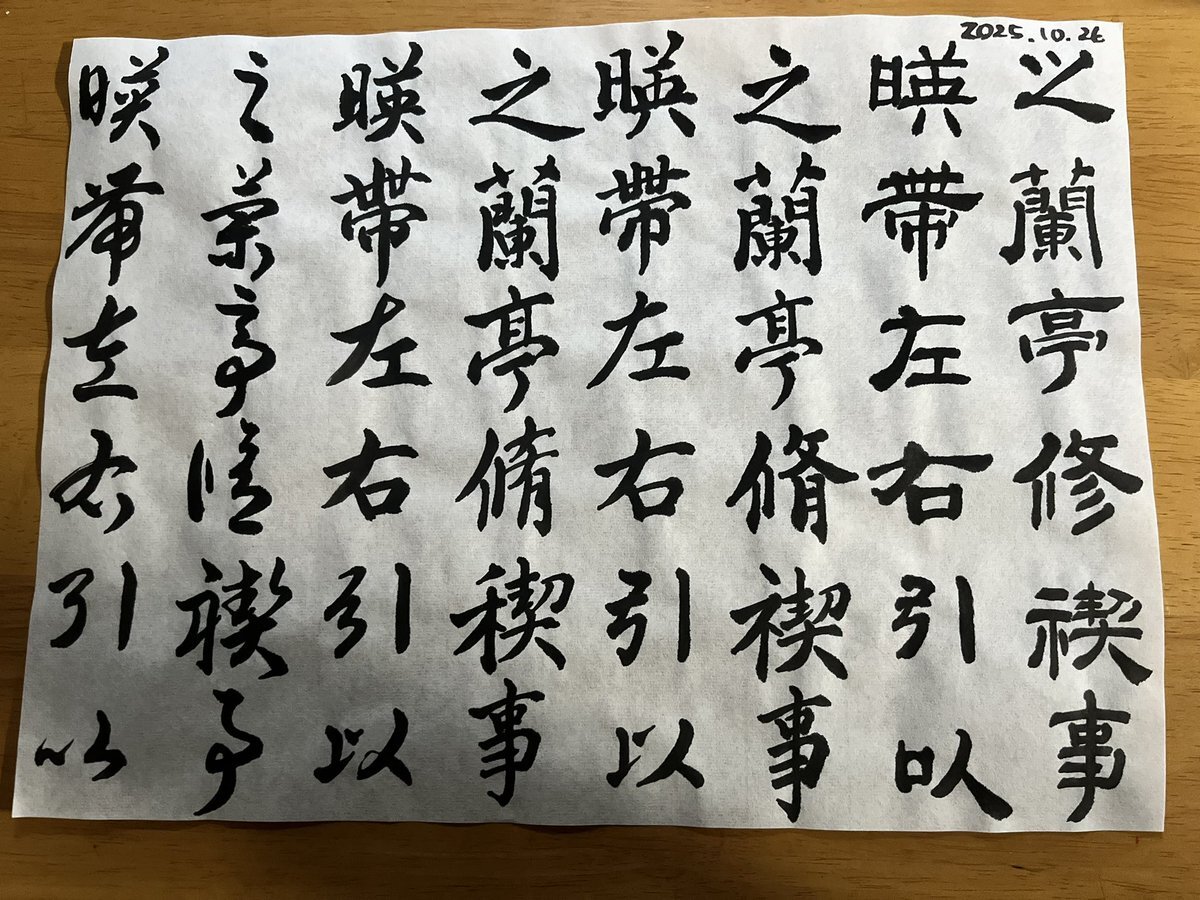 2025.10.26
之蘭亭修禊事
暎帶左右引以
之蘭亭脩禊事
暎帶左右引以
之蘭亭脩稧事
暎帶左右引以
之蘭亭脩禊事
暎帶左右引以